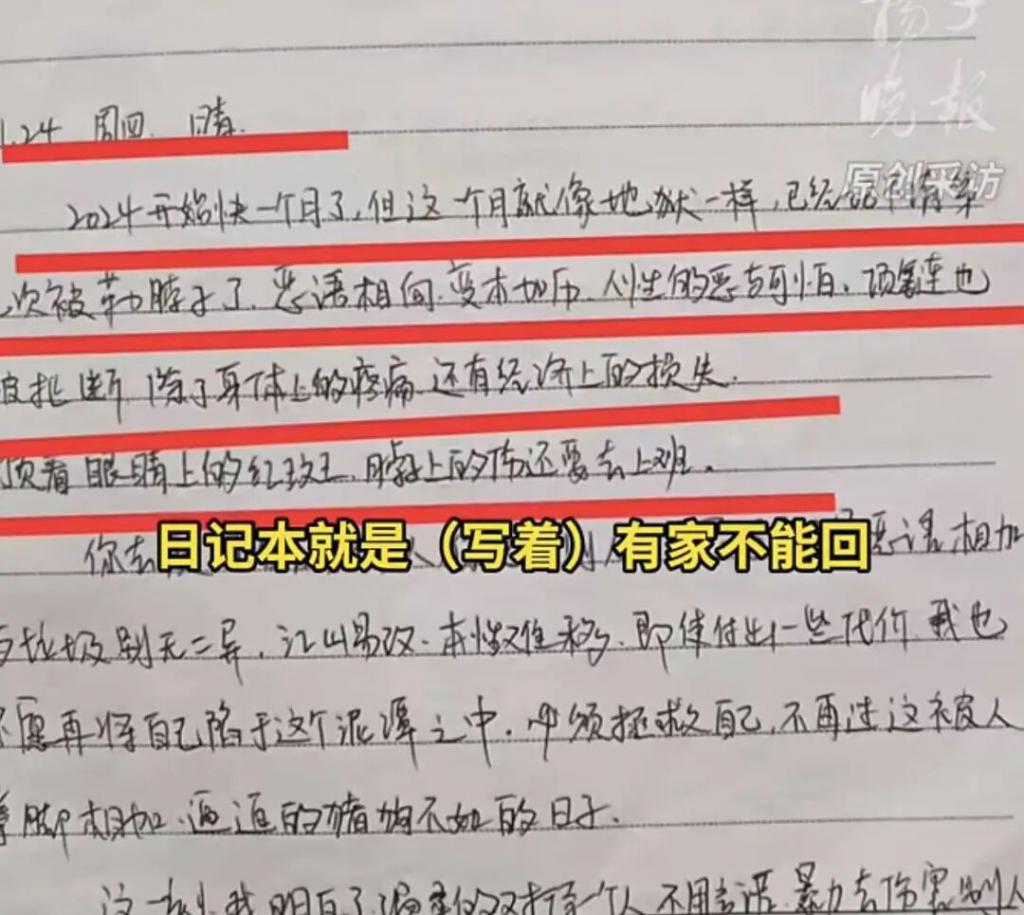 扬子
晚报
原创采访
1.24 周四 晴.
2024开始快一个月了,但这一个月就像地狱一样,已经记不清第
次被勒脖子了.恶语相向.变本加厉.人性的恶与可怕.项链也
被扯断 除了身体上的疼痛 还有经济上的损失.
顶着眼睛上的红斑 脖子上的伤还要去上班.
日记本就是（写着）有家不能回
你去 恶语相加
与垃圾别无二异.江山易改.本性难移.即使付出一些代价 我也
不愿再将自己陷于这个泥潭之中.必须拯救自己,不再过这被人
拳脚相加.逼迫的猪狗不如的日子.
这一刻 我明白了 对待一个人 不用言语.暴力去伤害别人